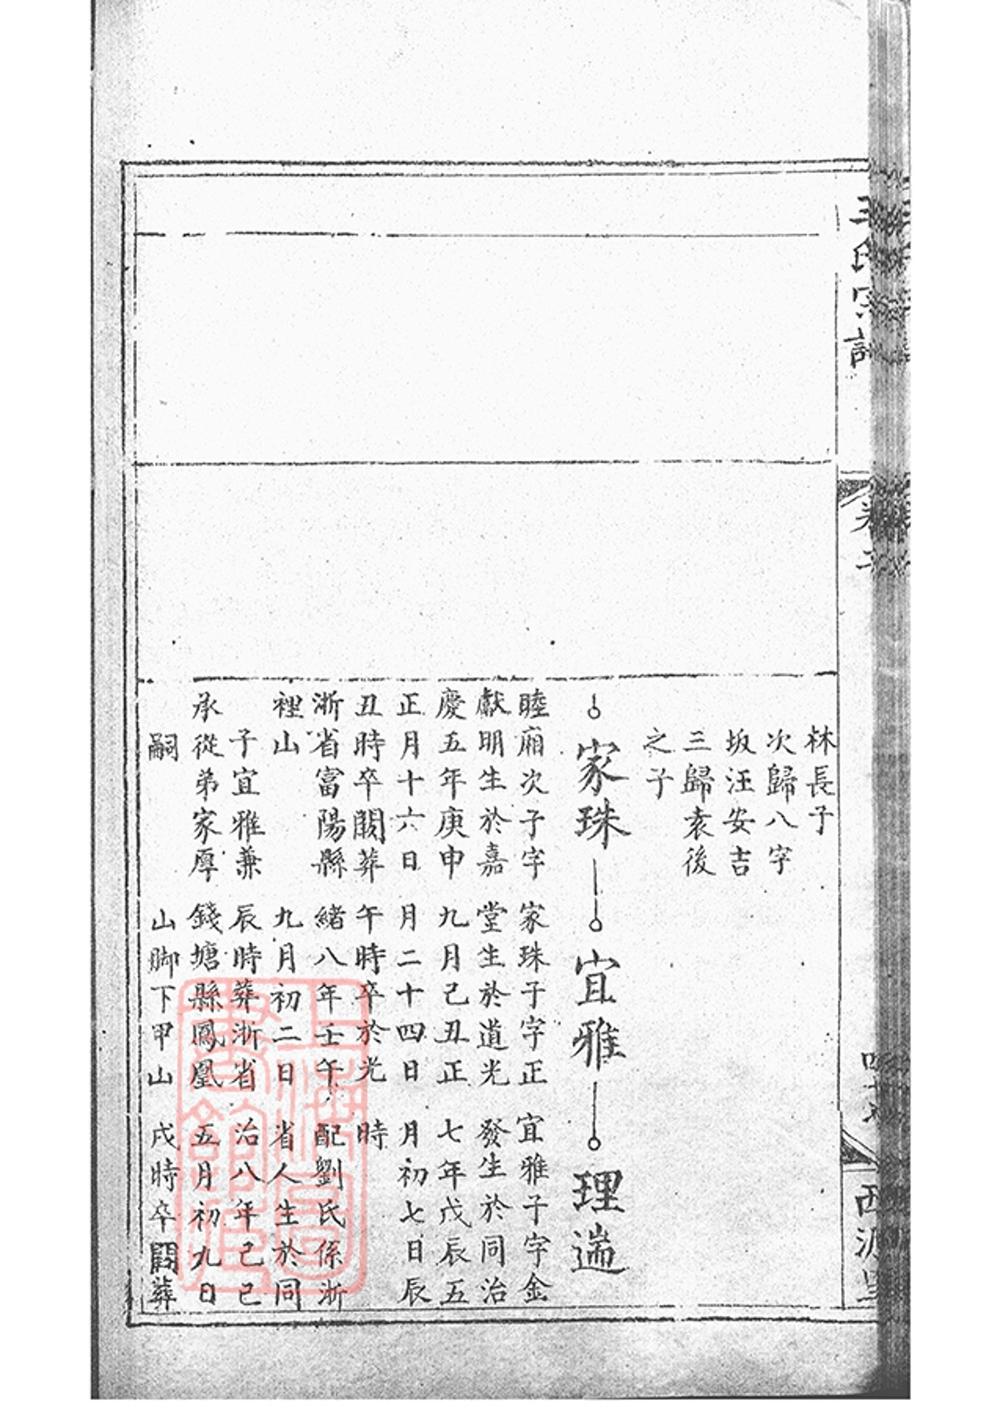 王氏宗譜
卷二
林長子
次歸八字
坂汪安吉
三歸袁後
之子
家珠
睦廂次子字
獻明生於嘉
慶五年庚申
正月十六日
丑時卒闕葬
浙省富陽縣
裡山
子宜雅兼
承從弟家厚
嗣
宜雅
家珠子字正
堂生於道光
九月己丑正
月二十四日
午時卒於光
緒八年壬午
九月初二日
辰時葬浙省
錢塘縣鳳凰
山脚下甲山
理遄
宜雅子字金
發生於同治
七年戊辰五
月初七日辰
時
配劉氏係浙
省人生於同
治八年己巳
五月初九日
戌時卒闕葬
上海圖
書館藏